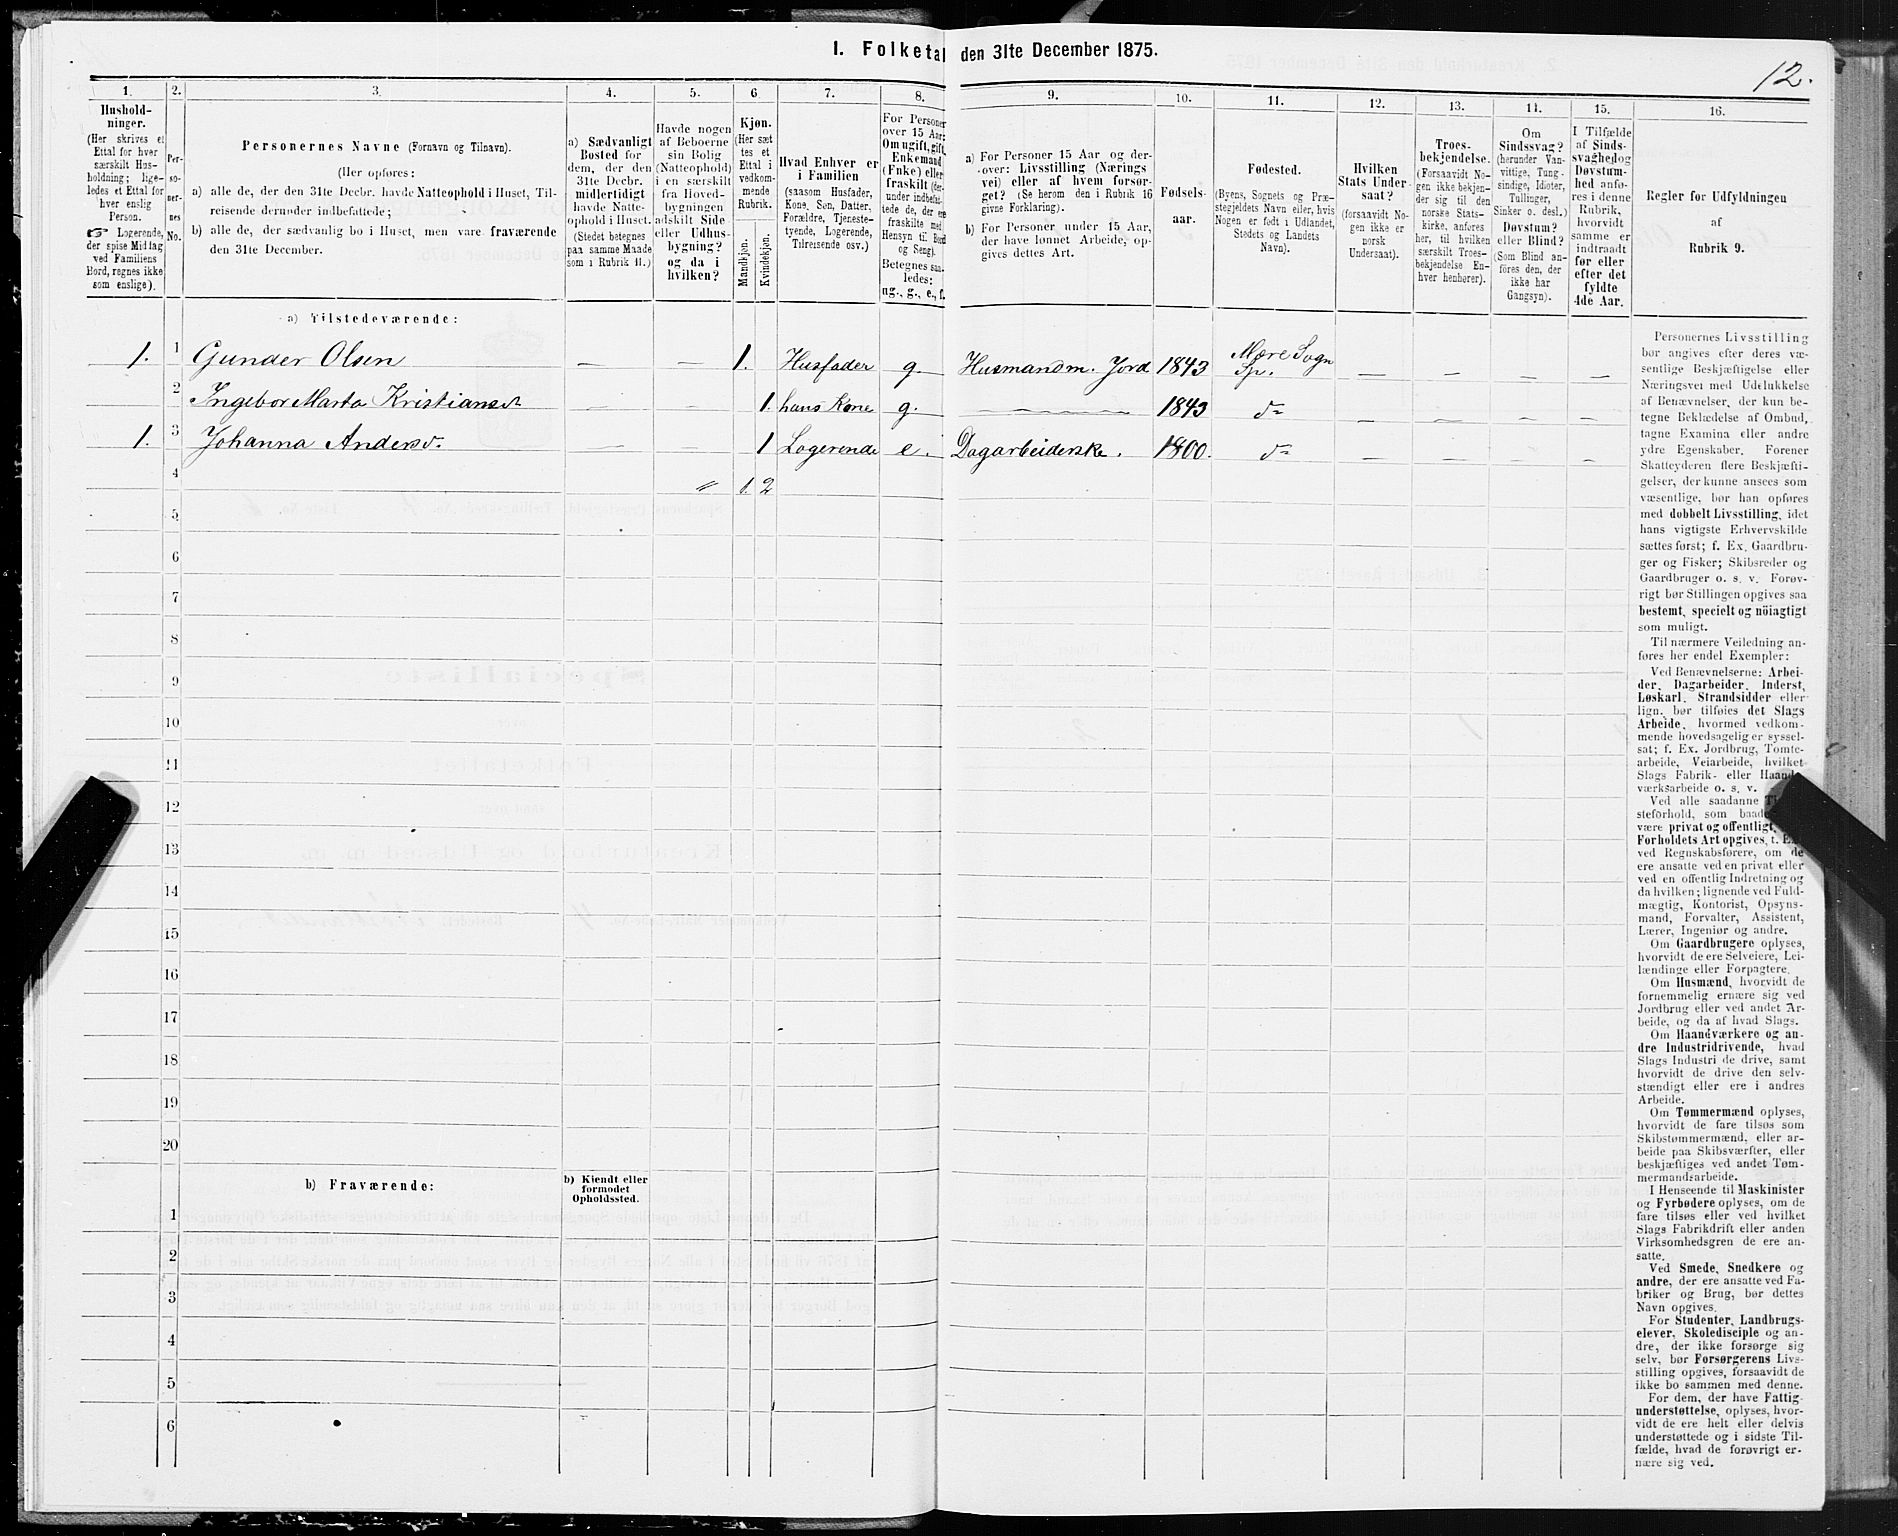 I. Folketal den 31te December 1875.
12.
1. 2. 3. 4. 5. 6 7. 8. 9. 10. 11. 12. 13. 14. 15. 16.
Hushold-
ninger.
(Her skrives et
Ettal for hver
særskilt Hus-
holdning; lige-
ledes et Ettal for
hver enslig
Person.
☞ Logerende,
der spise Middag
ved Familiens
Bord, regnes ikke
som enslige).
Per-
so-
ner-
nes
No.
Personernes Navne (Fornavn og Tilnavn).
(Her opføres:
a) alle de, der den 31te Decbr. havde Natteophold i Huset, Til-
reisende derunder indbefattede;
b) alle de, der sædvanlig bo i Huset, men vare fraværende
den 31te December.
a) Sædvanligt
Bosted for
dem, der den
31te Decbr.
midlertidigt
havde Natte-
ophold i Huset.
(Stedet betegnes
paa samme Maade
som i Rubrik 11.)
Havde nogen
af Beboerne
sin Bolig
(Natteophold)
i en særskilt
fra Hoved-
bygningen
adskilt Side
eller Udhus-
bygning?
og da i
hvilken?
Kjøn.
(Her sæt
tes et
Ettal i
vedkom-
mende
Rubrik.
Mandkjøn.
Kvindekjøn.
Hvad Enhver er
i Familien
(saasom Husfader,
Kone, Søn, Datter,
Forældre, Tjeneste-
tyende, Logerende,
Tilreisende osv.)
For Personer
over 15 Aar:
Om ugift, gift,
Enkemand
(Enke) eller
fraskilt (her-
under indbefat-
tede de, der ere
fraskilte med
Hensyn til Bord
og Seng).
Betegnes saa-
ledes:
ug., g., e., f.
a) For Personer 15 Aar og der-
over: Livsstilling (Nærings
vei) eller af hvem forsør-
get? (Se herom den i Rubrik 16
givne Forklaring).
b) For Personer under 15 Aar,
der have lønnet Arbeide, op-
gives dettes Art.
Fødsels-
aar.
Fødested.
(Byens, Sognets og Præ-
stegjeldets Navn eller, hvis
Nogen er født i Udlandet,
Stedets og Landets
Navn).
Hvilken
Stats Under-
saat?
(forsaavidt No-
gen ikke er
norsk
Undersaat).
Troes-
bekjendelse.
(Forsaavidt No-
gen ikke bekjen-
der sig til den
norske Stats-
kirke, anføres
her, til hvilken
særskilt Troes-
bekjendelse En-
hver henhører).
Om
Sindssvag?
(herunder Van-
vittige, Tung-
sindige, Idioter,
Tullinger,
Sinker o. desl.)
Døvstum?
eller Blind?
(Som Blind an-
føres den, der
ikke har
Gangsyn).
I Tilfælde
af Sinds-
svaghed og
Døvstum-
hed anfø-
res i denne
Rubrik,
hvorvidt
samme er
indtraadt
før eller
efter det
fyldte
4de Aar.
Regler for Udfyldningen
af
Rubrik 9.
a) Tilstedeværende:
1. 1 Gunder Olsen — — 1. Husfader g. Husmand m. Jord 1843 Mære Sogn Sp. — — — —
2 Ingebor Marta Kristiansd — — 1. hans Kone g. — 1843 d° — — — —
1. 3 Johanna Andersd. — — 1 Logerende e. Dagarbeiderske. 1800. d° — — — —
4 " 1. 2
5
6
7
8
9
10
11
12
13
14
15
16
17
18
19
20
b) Fraværende:
b) Kiendt eller
formodet
Opholdssted.
1
2
3
4
5
6
Personernes Livsstilling
bør angives efter deres væ-
sentlige Beskjæftigelse eller
Næringsvei med Udelukkelse
af Benævnelser, der kun be-
tegne Beklædelse af Ombud,
tagne Examina eller andre
ydre Egenskaber. Forener
Skatteyderen flere Beskjæfti-
gelser, der kunne ansees som
væsentlige, bør han opføres
med dobbelt Livsstilling, idet
hans vigtigste Erhvervskilde
sættes først; f. Ex. Gaardbru-
ger og Fisker; Skibsreder og
Gaardbruger o. s. v. Forøv-
rigt bør Stillingen opgives saa
bestemt, specielt og nöiagtigt
som muligt.
Til nærmere Veiledning an-
føres her endel Exempler:
Ved Benævnelserne: Arbei-
der, Dagarbeider, Inderst,
Løskarl, Strandsidder eller
lign. bør tilføies det Slags
Arbeide, hvormed vedkom-
mende hovedsagelig er syssel-
sat; f. Ex. Jordbrug, Tomte-
arbeide, Veiarbeide, hvilket
Slags Fabrik- eller Haand-
værksarbeide o. s. v.
Ved alle saadanne
steforhold, som baade
være privat og offentligt,
Forholdets Art opgives, t. Ex.
ved Regnskabsførere, om de
ere ansatte ved en privat eller
ved en offentlig Indretning og
da hvilken; lignende ved Fuld-
mægtig, Kontorist, Opsyns-
mand, Forvalter, Assistent,
Lærer, Ingeniør og andre.
Om Gaardbrugere oplyses,
hvorvidt de ere Selveiere, Lei-
lændinge eller Forpagtere.
Om Husmænd, hvorvidt de
fornemmelig ernære sig ved
Jordbrug eller ved andet Ar-
beide, og da af hvad Slags.
Om Haandværkere og an-
dre Industridrivende, hvad
Slags Industri de drive, samt
hvorvidt de drive den selv-
stændigt eller ere i andres
Arbeide.
Om Tømmermænd oplyses,
hvorvidt de fare tilsøs som
Skibstømmermænd, eller ar-
beide paa Skibsværfter, eller
beskjæftiges ved andet Tøm-
mermandsarbeide.
I Henseende til Maskinister
og Fyrbødere oplyses, om de
fare tilsøs eller ved hvilket
Slags Fabrikdrift eller anden
Virksomhedsgren de ere an-
satte.
Ved Smede, Snedkere og
andre, der ere ansatte ved Fa-
briker og Brug, bør dettes
Navn opgives.
For Studenter, Landbrugs-
elever, Skoledisciple og an-
dre, der ikke forsørge sig
selv, bør Forsørgerens Livs-
stilling opgives, forsaavidt de
ikke bo sammen med denne.
For dem, der have Fattig-
understøttelse, oplyses, hvor-
vidt de ere helt eller delvis
understøttede og i sidste Til-
fælde, hvad de forøvrigt er-
nære sig ved.